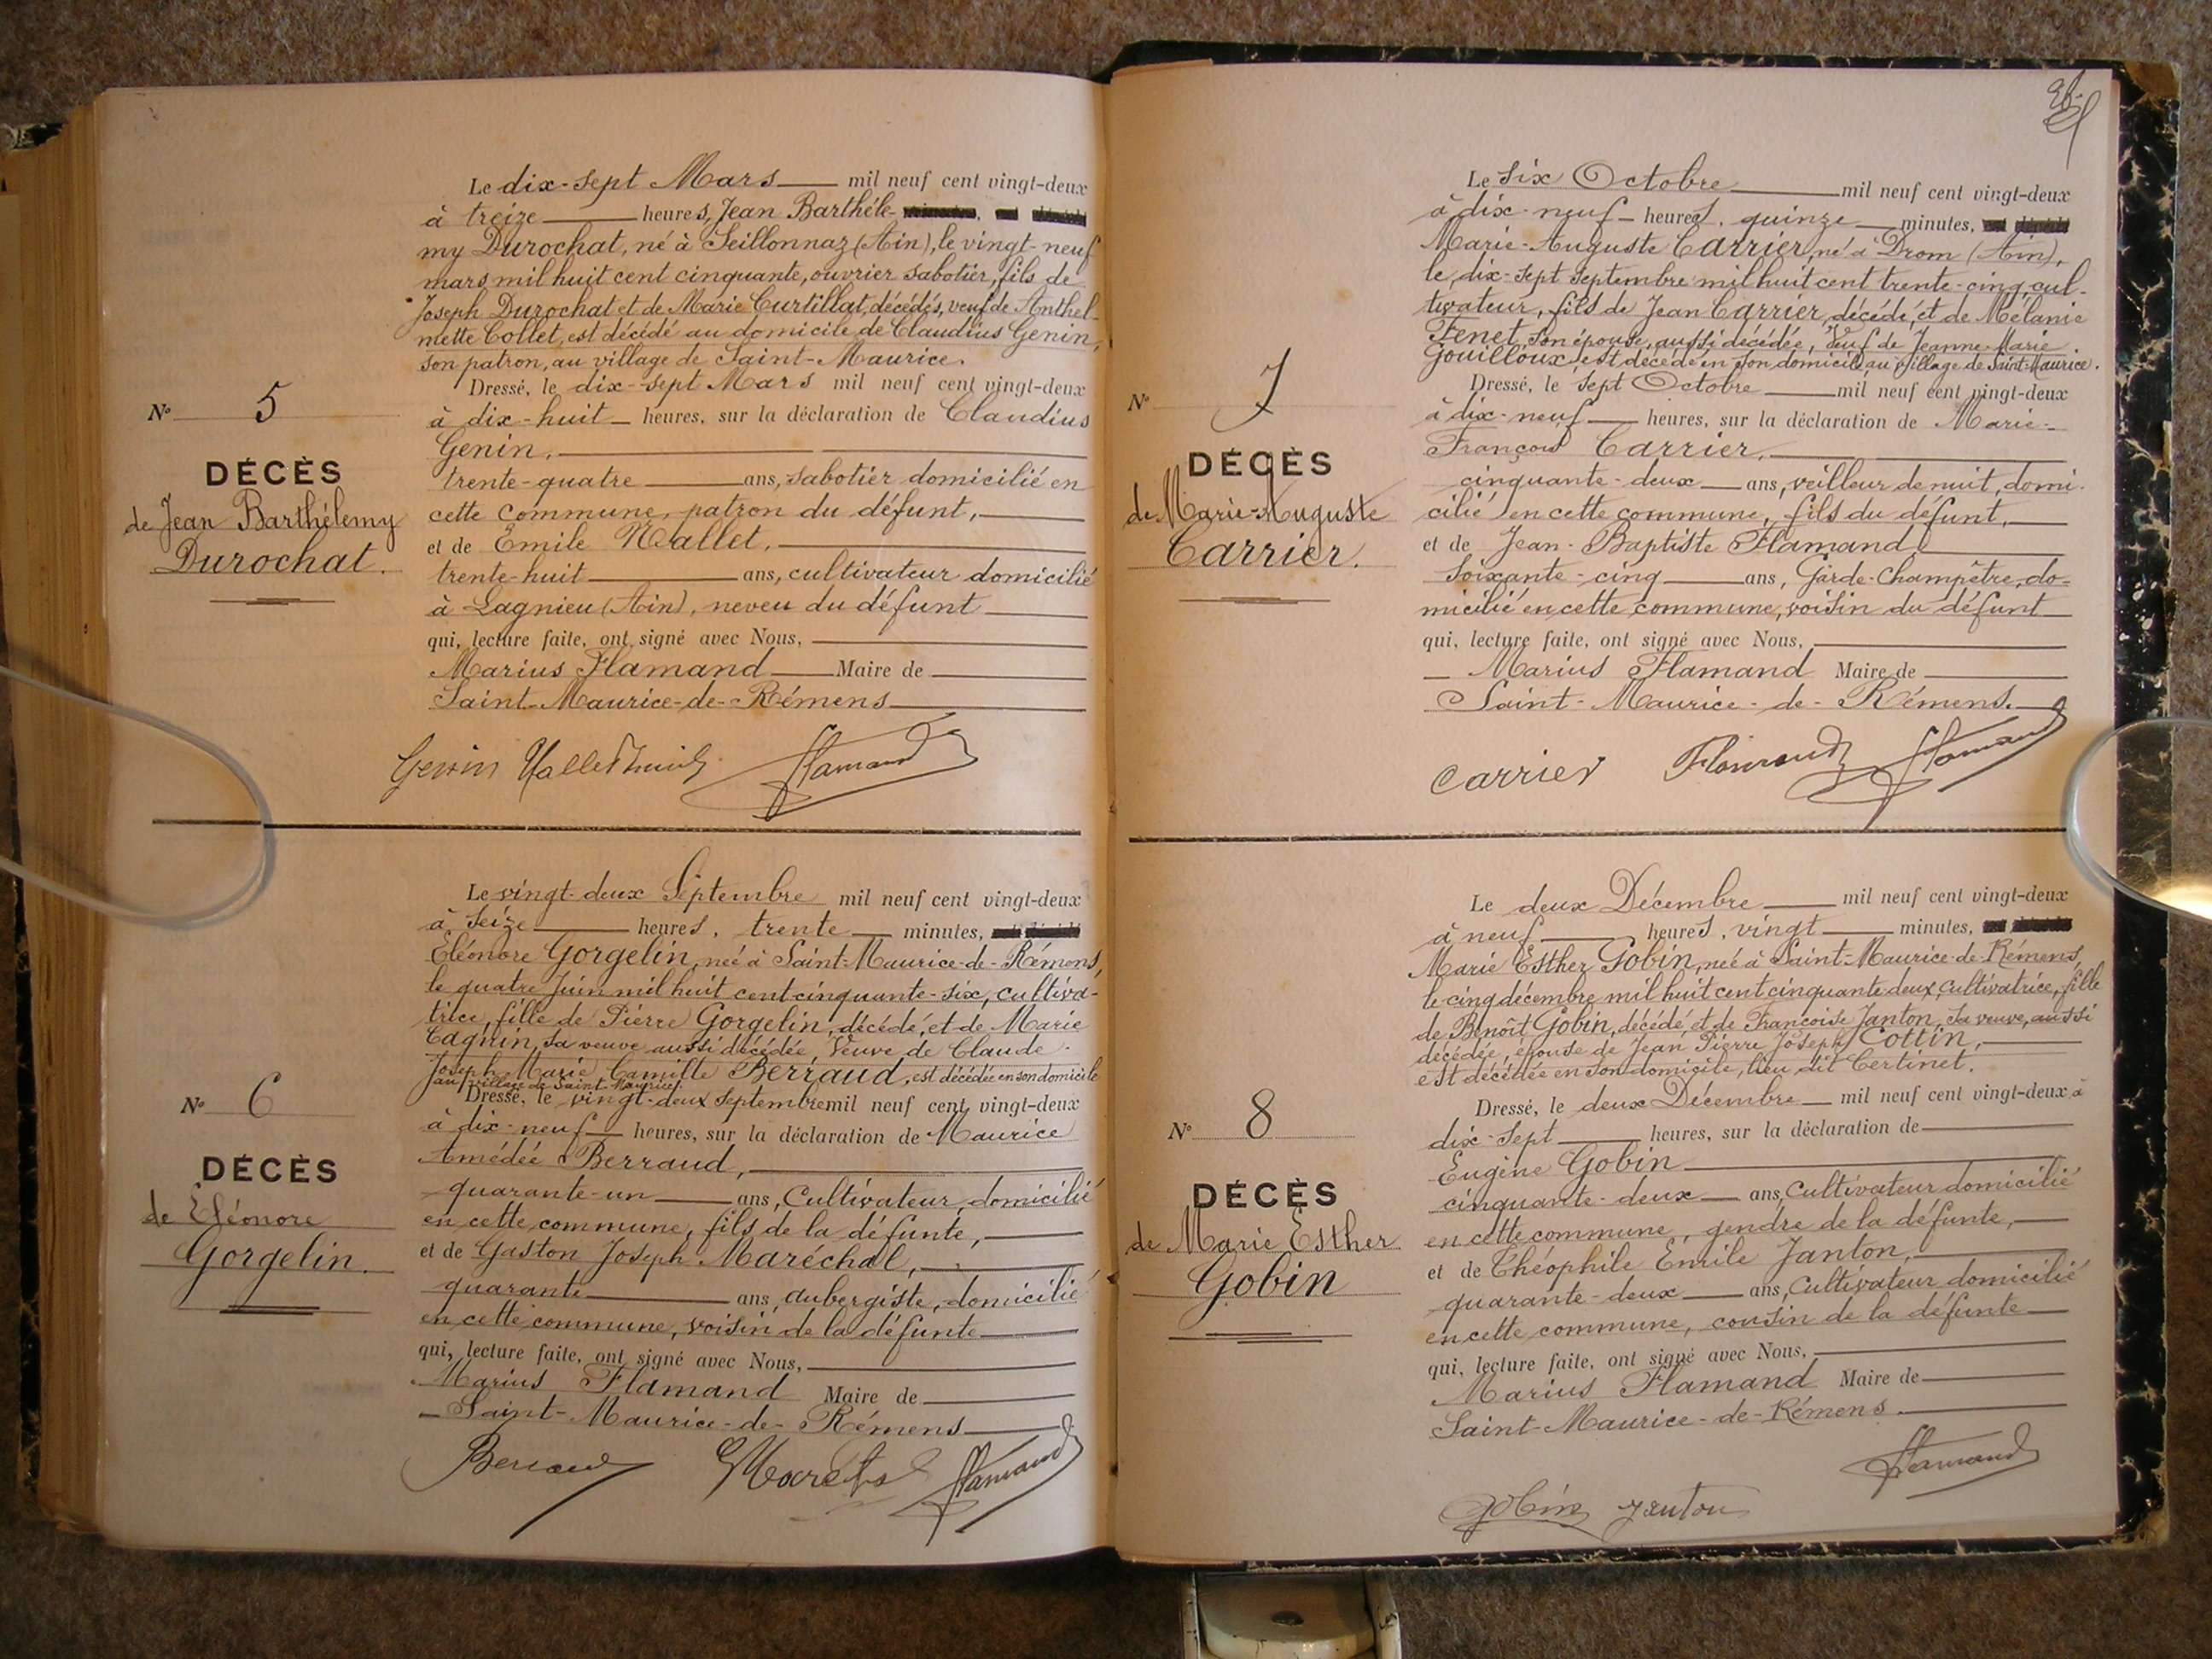 Le dix-sept Mars mil neuf cent vingt-deux
à treize heures, Jean Barthéle-
my Durochat, né à Seillonnaz (Ain), le vingt-neuf
mars mil huit cent cinquante, ouvrier sabotier, fils de
Joseph Durochat et de Marie Curtillat, décédés, veuf de Anthel-
mette Collet, est décédé au domicile de Claudius Genin,
son patron, au village de Saint-Maurice.
Dressé, le dix-sept Mars mil neuf cent vingt-deux
à dix-huit heures, sur la déclaration de Claudius
Genin,
trente-quatre ans, sabotier domicilié en
cette commune, patron du défunt,
et de Emile Vallet,
trente-huit ans, cultivateur domicilié
à Lagnieu (Ain), neveu du défunt
qui, lecture faite, ont signé avec Nous,
Marius Flamand Maire de
Saint-Maurice-de-Rémens
N° 5
DÉCÈS
de Jean Barthélemy
Durochat.
Genin Vallet Flamand
Le vingt-deux Septembre mil neuf cent vingt-deux
à seize heures, trente minutes,
Eléonore Gorgelin, née à Saint-Maurice-de-Rémens,
le quatre Juin mil huit cent cinquante-six, cultiva-
trice, fille de Pierre Gorgelin, décédé, et de Marie
Cagnin, sa veuve aussi décédée, Veuve de Claude
Joseph Marie Camille Berraud, est décédée en son domicile
au village de Saint-Maurice.
Dressé, le vingt-deux Septembre mil neuf cent vingt-deux
à dix-neuf heures, sur la déclaration de Maurice
Amédée Berraud,
quarante-un ans, Cultivateur, domicilié
en cette commune, fils de la défunte,
et de Gaston Joseph Maréchal,
quarante ans, aubergiste, domicilié
en cette commune, voisin de la défunte
qui, lecture faite, ont signé avec Nous,
Marius Flamand Maire de
Saint-Maurice-de-Rémens
N° 6
DÉCÈS
de Eléonore
Gorgelin.
Berraud Flamand
Le six Octobre mil neuf cent vingt-deux
à dix-neuf heures, quinze minutes,
Marie-Auguste Carrier, né à Drom (Ain),
le dix-sept septembre mil huit cent trente-cinq, cul-
tivateur, fils de Jean Carrier, décédé, et de Mélanie
Fenet, son épouse, aussi décédée, Veuf de Jeanne-Marie
Gouilloux, est décédé en son domicile, au village de Saint-Maurice.
Dressé, le sept Octobre mil neuf cent vingt-deux
à dix-neuf heures, sur la déclaration de Marie-
François Carrier,
cinquante-deux ans, veilleur de nuit, domi-
cilié en cette commune, fils du défunt,
et de Jean-Baptiste Flamand
soixante-cinq ans, Garde-Champêtre, do-
micilié en cette commune, voisin du défunt
qui, lecture faite, ont signé avec Nous,
Marius Flamand Maire de
Saint-Maurice-de-Rémens.
N° 7
DÉCÈS
de Marie-Auguste
Carrier.
Carrier Flamand Flamand
Le deux Décembre mil neuf cent vingt-deux
à neuf heures, vingt minutes,
Marie Esther Gobin, née à Saint-Maurice-de-Rémens,
le cinq décembre mil huit cent cinquante deux, cultivatrice, fille
de Benoît Gobin, décédé, et de Françoise Janton, sa veuve, aussi
décédée, épouse de Jean Pierre Joseph Cottin,
est décédée en son domicile, lieu dit Certinet.
Dressé, le deux Décembre mil neuf cent vingt-deux à
dix-sept heures, sur la déclaration de
Eugène Gobin
cinquante-deux ans, Cultivateur domicilié
en cette commune, gendre de la défunte,
et de Théophile Emile Janton,
quarante-deux ans, Cultivateur domicilié
en cette commune, cousin de la défunte
qui, lecture faite, ont signé avec Nous,
Marius Flamand Maire de
Saint-Maurice-de-Rémens.
N° 8
DÉCÈS
de Marie Esther
Gobin
Flamand
Gobin Janton